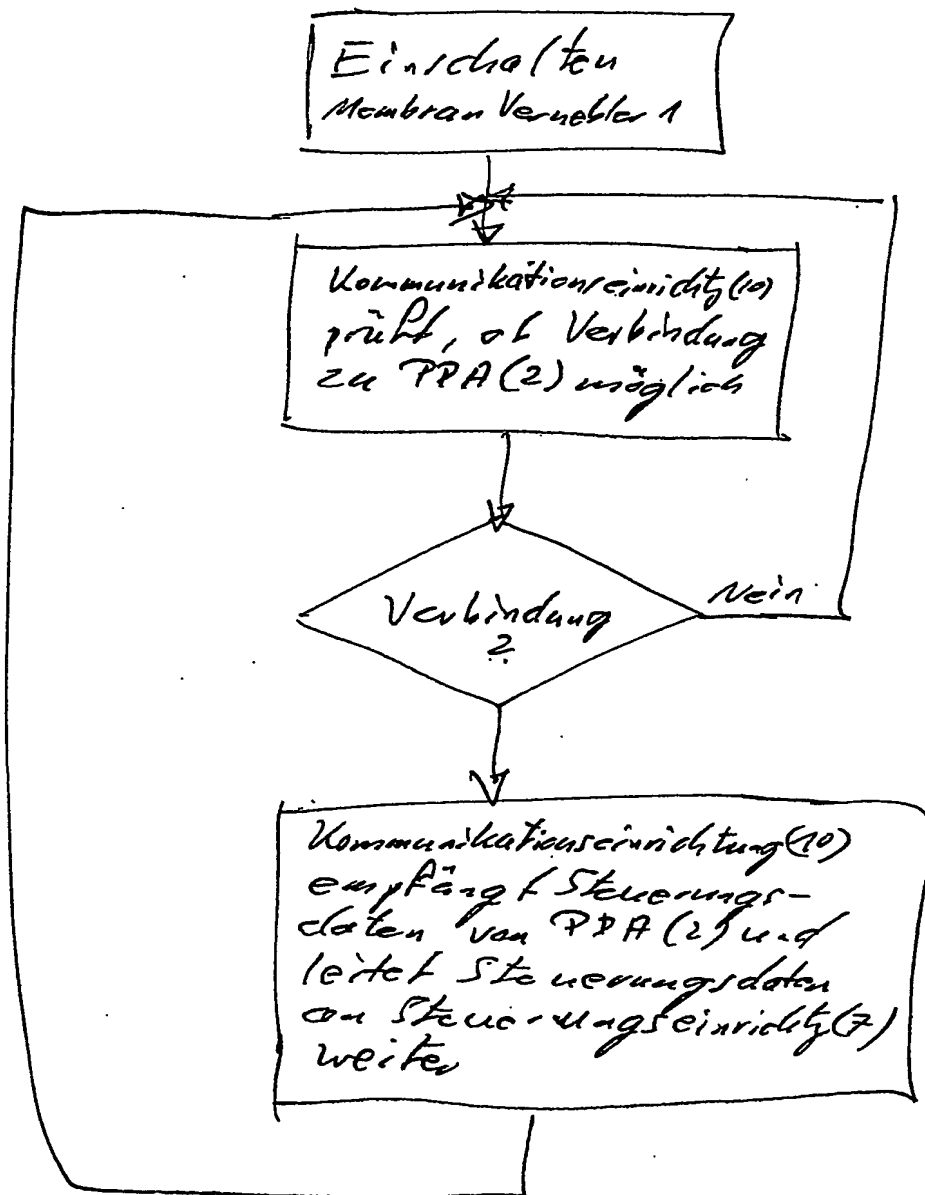 Einschalten
Membran Vernebler 1
Kommunikationseinrichtg(10)
prüft, ob Verbindung
zu PDA (2) möglich
Verbindung
?
Nein
Kommunikationseinrichtung(10)
empfängt Steuerungs-
daten von PDA (2) und
leitet Steuerungsdaten
an Steuerungseinrichtg(7)
weiter